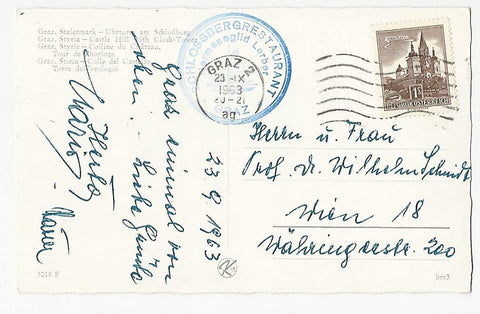 Graz, Steiermark - Uhrturm am Schloßberg
Graz, Styria - Castle Hill with Clock-Tower
Graz, Styrie - Colline du Château,
Tour de l'horloge
Graz, Stiria - Colle del Castello
Torre dell'orologio
SCHLOSSBERGRESTAURANT
GRAZ
GRAZ 2
23-IX
1963
20-21
ag
1S
REPUBLIK ÖSTERREICH
Graz einmal von
oben! - Liebe Grüße
Herta
Mario
23 9 1963
Herrn u. Frau
Prof. Dr. Wilhelm Schmidt
Wien 18
Währingerstr. 200
3218 F
K
brr3